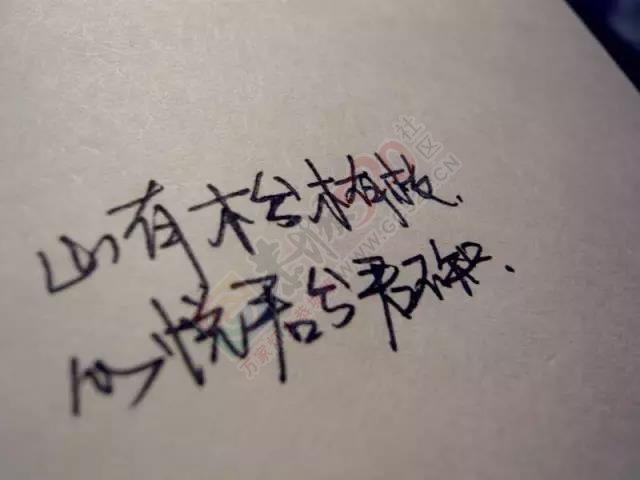 山有木兮木有枝.
心悦君兮君不知.
社区